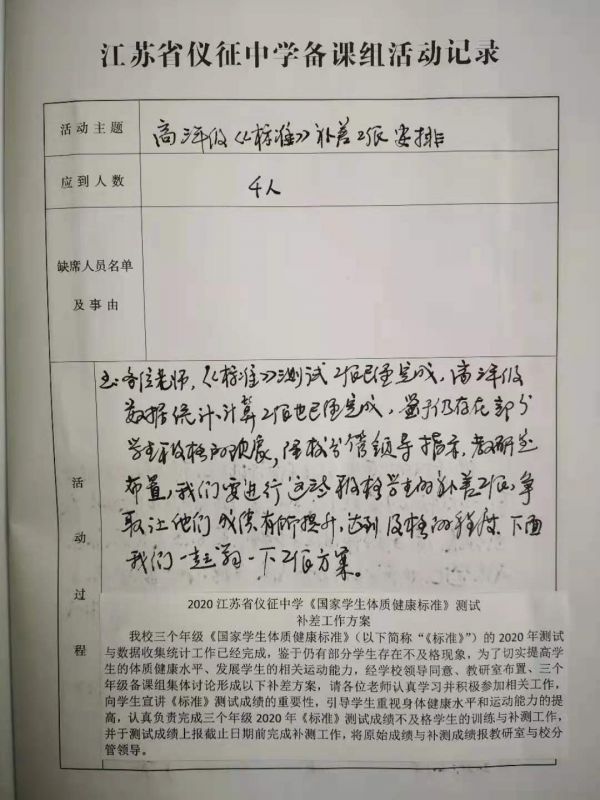 江苏省仪征中学备课组活动记录
活动主题
高三年级《标准》补差工作安排
应到人数
4人
缺席人员名单
及事由
活动过程
各位老师,《标准》测试工作已经完成,高三年级
数据统计、计算工作也已经完成,鉴于仍存在部分
学生不及格的现象,经校分管领导指示,教研室
布置,我们要进行这些不及格学生的补差工作,争
取让他们成绩有所提升,达到及格的程度。下面
我们一起学习一下工作方案。
2020 江苏省仪征中学《国家学生体质健康标准》测试
补差工作方案
我校三个年级《国家学生体质健康标准》(以下简称“《标准》”)的 2020 年测试
与数据收集统计工作已经完成,鉴于仍有部分学生存在不及格现象,为了切实提高学
生的体质健康水平、发展学生的相关运动能力,经学校领导同意、教研室布置、三个
年级备课组集体讨论形成以下补差方案,请各位老师认真学习并积极参加相关工作,
向学生宣讲《标准》测试成绩的重要性,引导学生重视身体健康水平和运动能力的提
高,认真负责完成三个年级 2020 年《标准》测试成绩不及格学生的训练与补测工作,
并于测试成绩上报截止日期前完成补测工作,将原始成绩与补测成绩报教研室与校分
管领导。